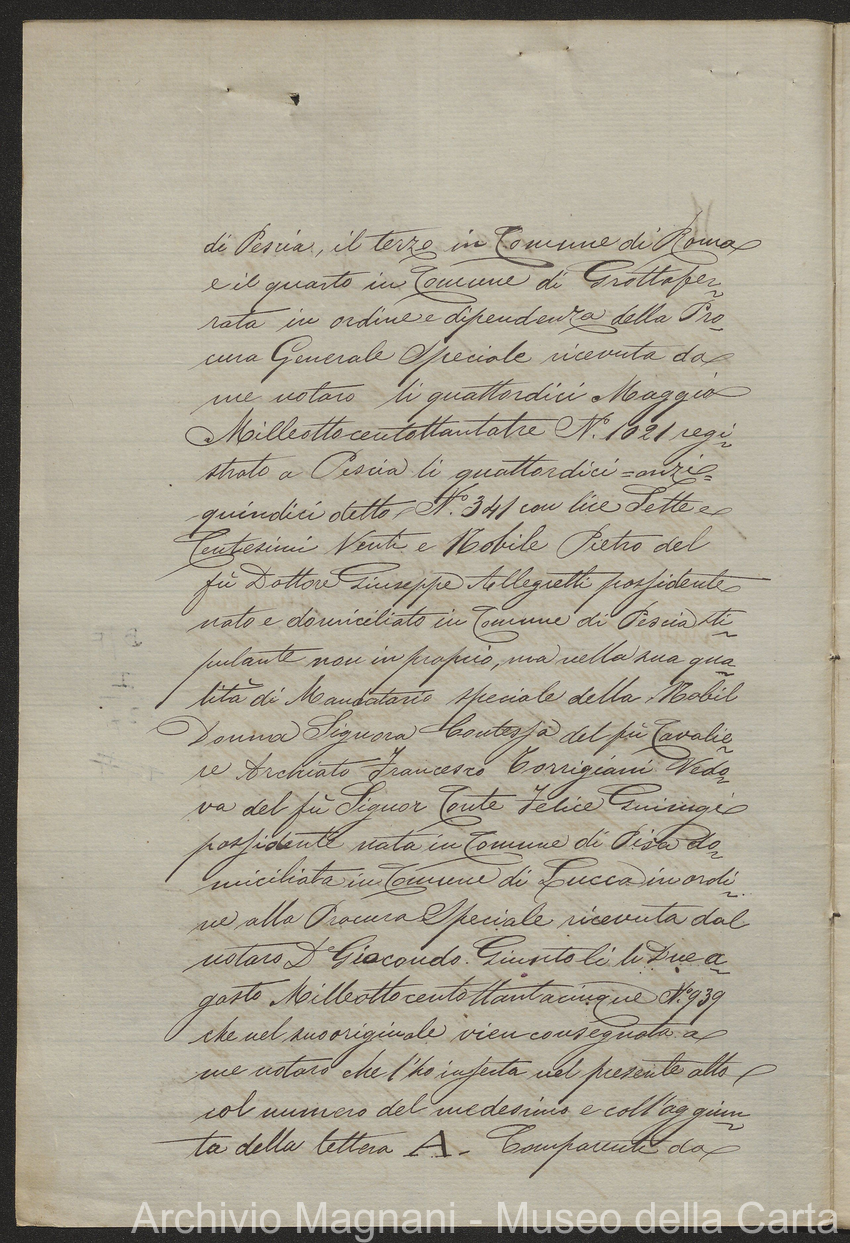 di Pescia, il terzo in Comune di Roma
e il quarto in Comune di Grottafer-
rata in ordine e dipendenza della Pro-
cura Generale Speciale ricevuta da
me notaro li quattordici Maggio
Milleottocentottantatre N.º 1021 regi-
strato a Pescia li quattordici =anzi=
quindici detto N.º 341 con lire Sette e
Centesimi Venti e Nobile Pietro del
fù Dottore Giuseppe Allegretti possidente
nato e domiciliato in Comune di Pescia sti-
pulante non in proprio, ma nella sua qua-
lità di Mandatario speciale della Nobil
Donna Signora Contessa del fù Cavalie-
re Francesco Torrigiani Vedo-
va del fù Signor Conte Felice Guinigi
possidente nata in Comune di Pisa do-
miciliata in Comune di Lucca in ordi-
ne alla Procura Speciale ricevuta dal
notaro D. Giocondo Giuntoli li Due a-
gosto Milleottocentottantacinque N.º 939
che nel suo originale vien consegnata a
me notaro che l'ho inserta nel presente atto
col numero del medesimo e coll'aggiun-
ta della lettera A - Comparenti da
Archivio Magnani - Museo della Carta